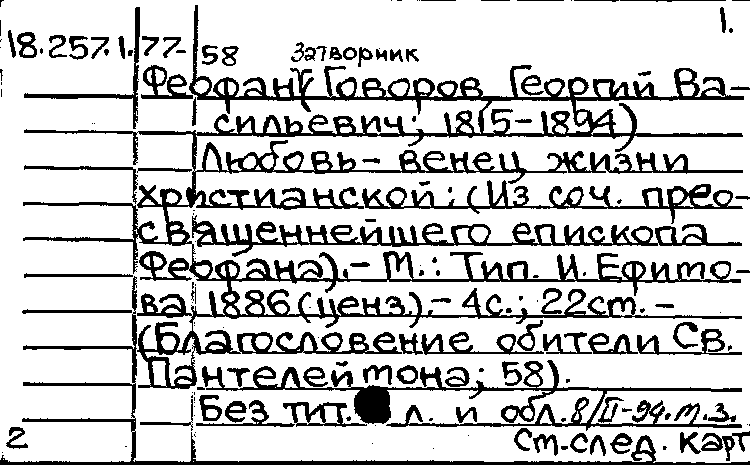 1.
18.257.1.77-58 Затворник
Феофан (Говоров, Георгий Ва-
сильевич; 1815-1894)
Любовь - венец жизни
христианской: (Из соч. прео-
священнейшего епископа
Феофана).- М.: Тип. И. Ефимо-
ва, 1886 (ценз.).- 4с.; 22см. -
(Благословение обители Св.
Пантелеймона; 58).
Без тит. л. и обл. 8/II-94.м.з.
2 См.след. карт